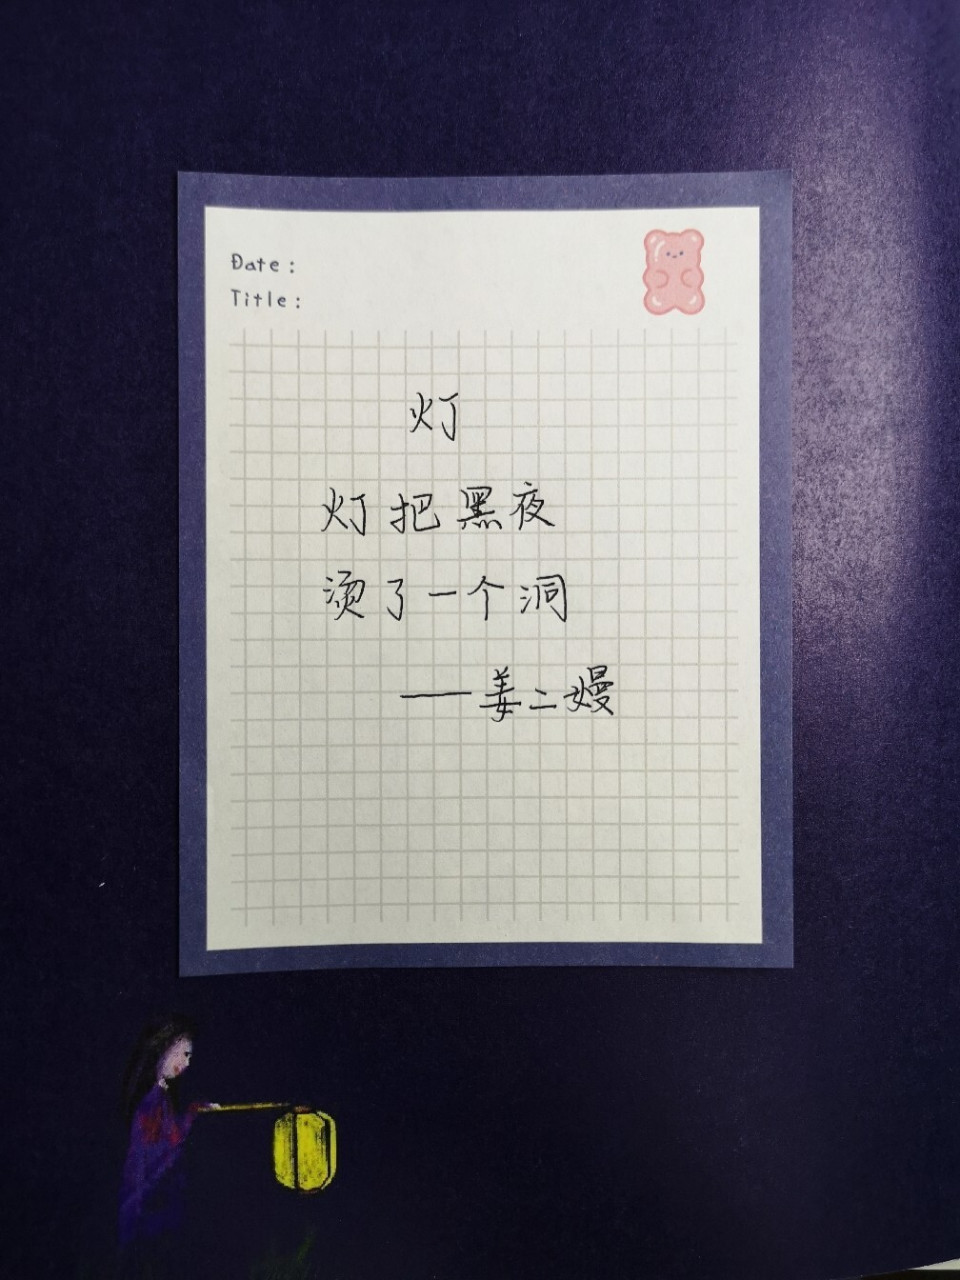 Date:
Title:
灯
灯把黑夜
烫了一个洞
——姜二嫚